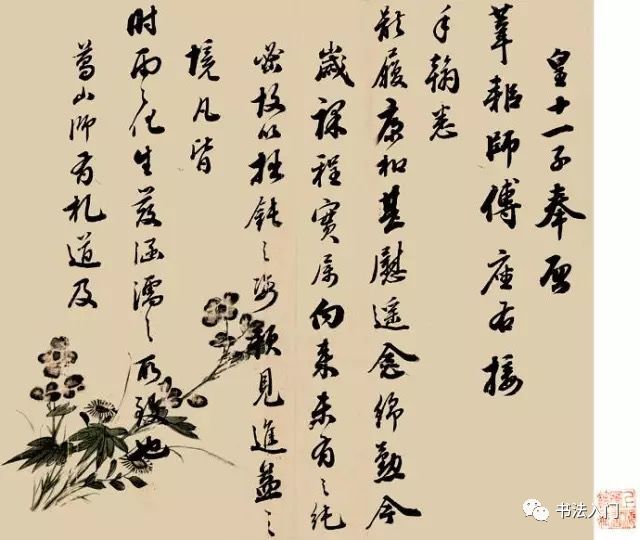 皇十一子奉启
葦師傅座右接
手翰悉
履康和甚慰遥念綿懃今
歲課程實属向来未有之純
密故以拙鈍之姿頗見進益之
境凡皆
时雨之化生茂涵濡之所致也
葛山師有札道及
书法入门